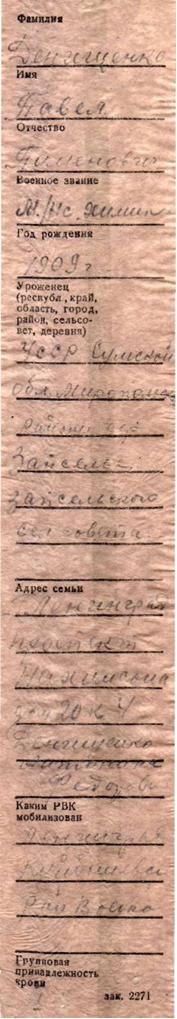 Фамилия
Денищенко
Имя
Павел
Отчество
Пименович
Военное звание
М/нс. химик
Год рождения
1909 г
Уроженец
(республ., край,
область, город,
район, сельсо-
вет, деревня)
УССР Сумской
обл. Миропольск
район
Запселье
Запсельского
сельсовета
Адрес семьи
Ленинград
проспект
Нахимсона
дом 20 к 4
Денищенко
Федоровн
Каким РВК
мобилизован
Рай Военко
Групповая
принадлежность
крови
зак. 2271